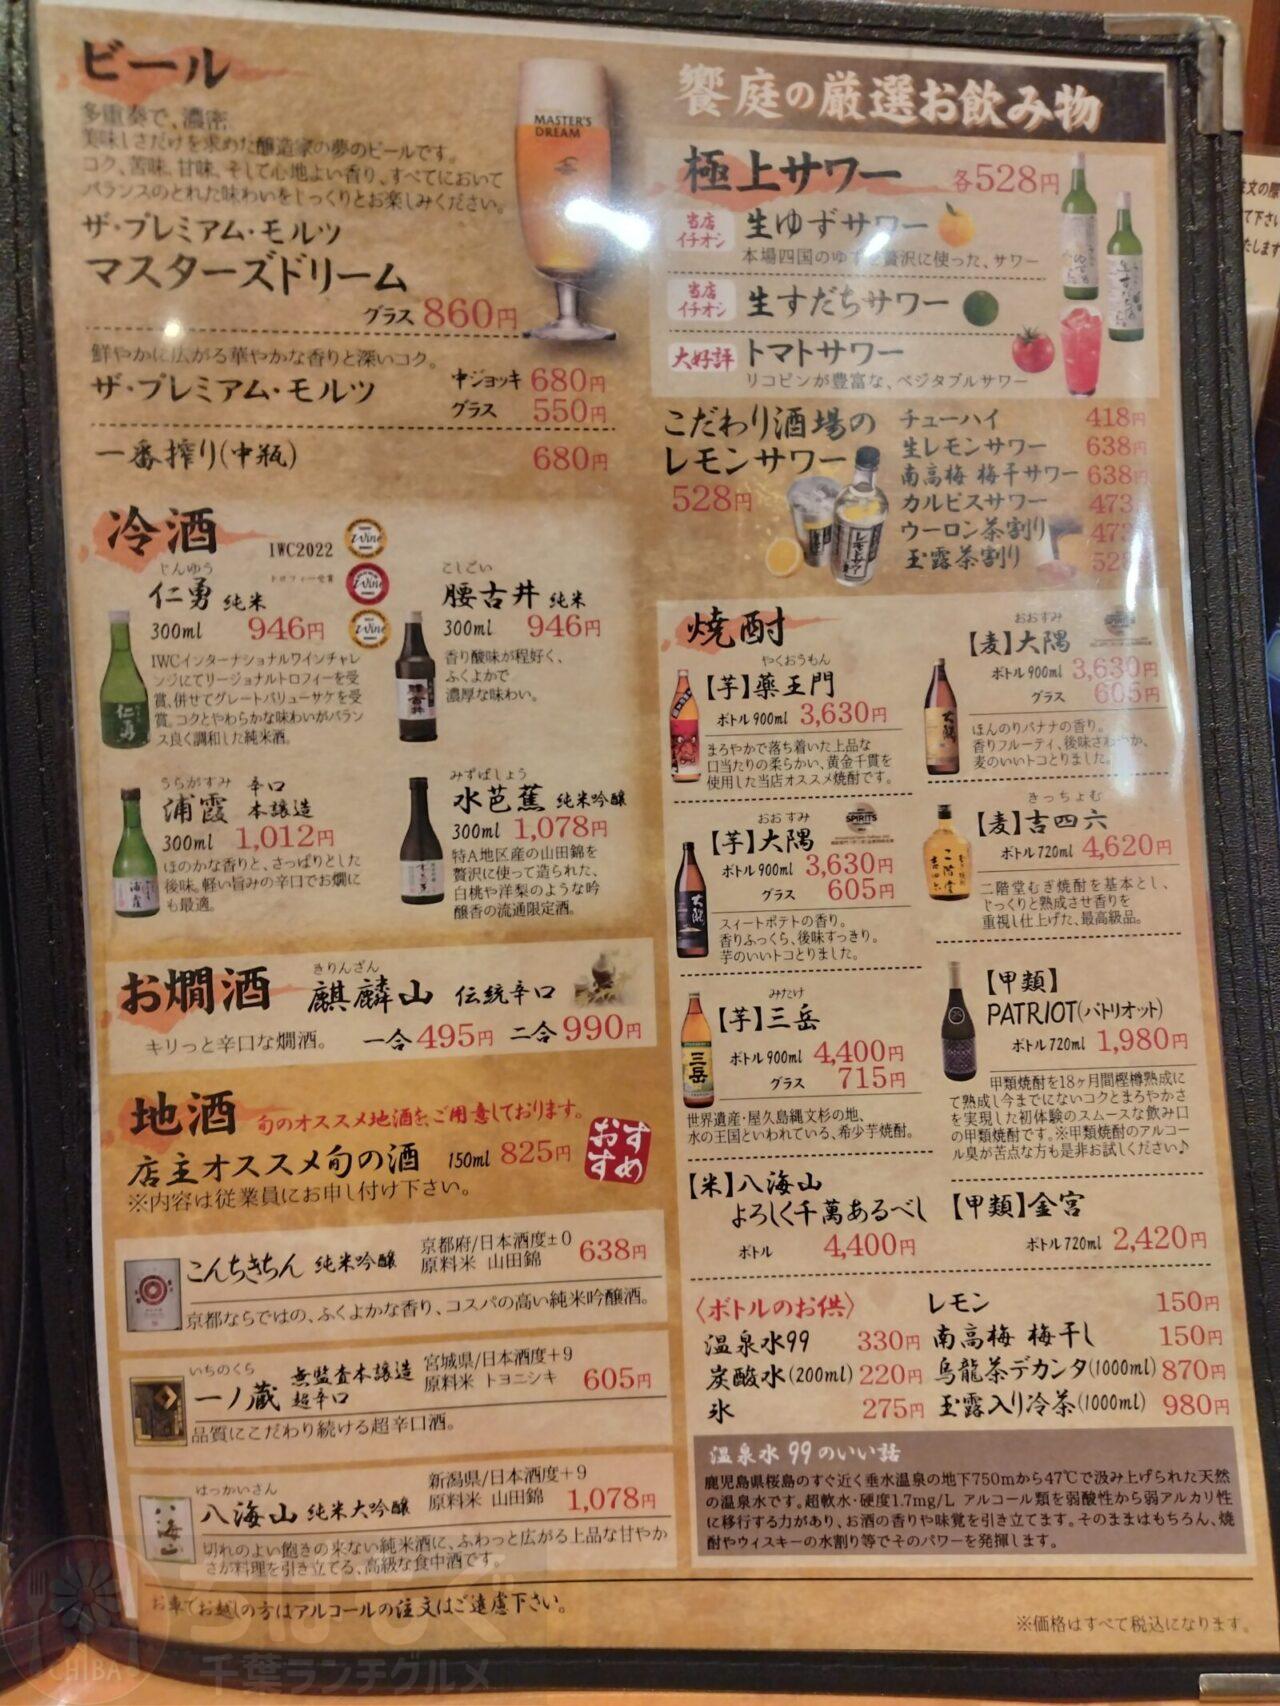 ビール
多重奏で、濃密
美味しさだけを求めた醸造家の夢のビールです。
コク、苦味、甘味、そして心地よい香り、すべてにおいて
バランスのとれた味わいをじっくりとお楽しみください。
ザ・プレミアム・モルツ
マスターズドリーム
グラス 860円
MASTER'S
DREAM
鮮やかに広がる華やかな香りと深いコク。
ザ・プレミアム・モルツ
中ジョッキ 680円
グラス 550円
一番搾り(中瓶) 680円
冷酒
IWC2022
トロフィー受賞
じんゆう
仁勇 純米
300ml 946円
IWCインターナショナルワインチャレ
ンジにてリージョナルトロフィーを受
賞、併せてグレートバリューサケを受
賞。コクとやわらかな味わいがバラン
ス良く調和した純米酒。
こしごい
腰古井 純米
300ml 946円
香り酸味が程好く、
ふくよかで
濃厚な味わい。
うらがすみ
浦霞 辛口
本醸造
300ml 1,012円
ほのかな香りと、さっぱりとした
後味。軽い旨みの辛口でお燗に
も最適。
みずばしょう
水芭蕉 純米吟醸
300ml 1,078円
特A地区産の山田錦を
贅沢に使って造られた、
白桃や洋梨のような吟
醸香の流通限定酒。
お燗酒
きりんざん
麒麟山 伝統辛口
キリっと辛口な燗酒。
一合 495円 二合 990円
地酒 旬のオススメ地酒をご用意しております。
店主オススメ旬の酒 150ml 825円
おすすめ
※内容は従業員にお申し付け下さい。
こんちきちん 純米吟醸
京都府/日本酒度±0
原料米 山田錦
638円
京都ならではの、ふくよかな香り、コスパの高い純米吟醸酒。
いちのくら
一ノ蔵 無監査本醸造
超辛口
宮城県/日本酒度+9
原料米 トヨニシキ
605円
品質にこだわり続ける超辛口酒。
はっかいさん
八海山 純米大吟醸
新潟県/日本酒度+9
原料米 山田錦
1,078円
切れのよい飽きの来ない純米酒に、ふわっと広がる上品な甘やか
さが料理を引き立てる、高級な食中酒です。
お車でお越しの方はアルコールの注文はご遠慮下さい。
饗庭の厳選お飲み物
極上サワー 各528円
当店
イチオシ
生ゆずサワー
本場四国のゆずを贅沢に使った、サワー
当店
イチオシ
生すだちサワー
大好評
トマトサワー
リコピンが豊富な、ベジタブルサワー
こだわり酒場の
レモンサワー
528円
チューハイ 418円
生レモンサワー 638円
南高梅 梅干サワー 638円
カルピスサワー 473
ウーロン茶割り 473
玉露茶割り 528
焼酎
やくおうもん
【芋】薬王門
ボトル 900ml 3,630円
まろやかで落ち着いた上品な
口当たりの柔らかい、黄金千貫を
使用した当店オススメ焼酎です。
おおすみ
【麦】大隅
ボトル 900ml 3,630円
グラス 605円
ほんのりバナナの香り。
香りフルーティ、後味さわやか、
麦のいいトコとりました。
おおすみ
【芋】大隅
SPIRITS
ボトル 900ml 3,630円
グラス 605円
スィートポテトの香り。
香りふっくら、後味すっきり。
芋のいいトコとりました。
きっちょむ
【麦】吉四六
ボトル 720ml 4,620円
二階堂むぎ焼酎を基本とし、
じっくりと熟成させ香りを
重視し仕上げた、最高級品。
みたけ
【芋】三岳
ボトル 900ml 4,400円
グラス 715円
世界遺産・屋久島縄文杉の地、
水の王国といわれている、希少芋焼酎。
【甲類】
PATRIOT(パトリオット)
ボトル 720ml 1,980円
甲類焼酎を18ヶ月間樫樽熟成に
て熟成し今までにないコクとまろやかさ
を実現した初体験のスムースな飲み口
の甲類焼酎です。※甲類焼酎のアルコー
ル臭が苦点な方も是非お試しください♪
【米】八海山
よろしく千萬あるべし
ボトル 4,400円
【甲類】金宮
ボトル 720ml 2,420円
〈ボトルのお供〉
温泉水99 330円
炭酸水(200ml) 220円
氷 275円
レモン 150円
南高梅 梅干し 150円
烏龍茶デカンタ(1000ml) 870円
玉露入り冷茶(1000ml) 980円
温泉水99のいい話
鹿児島県桜島のすぐ近く垂水温泉の地下750mから47℃で汲み上げられた天然
の温泉水です。超軟水・硬度1.7mg/L アルコール類を弱酸性から弱アルカリ性
に移行する力があり、お酒の香りや味覚を引き立てます。そのままはもちろん、焼
酎やウィスキーの水割り等でそのパワーを発揮します。
※価格はすべて税込になります。
文の際
て下さい
たします
ちばもぐ
千葉ランチグルメ
CHIBA